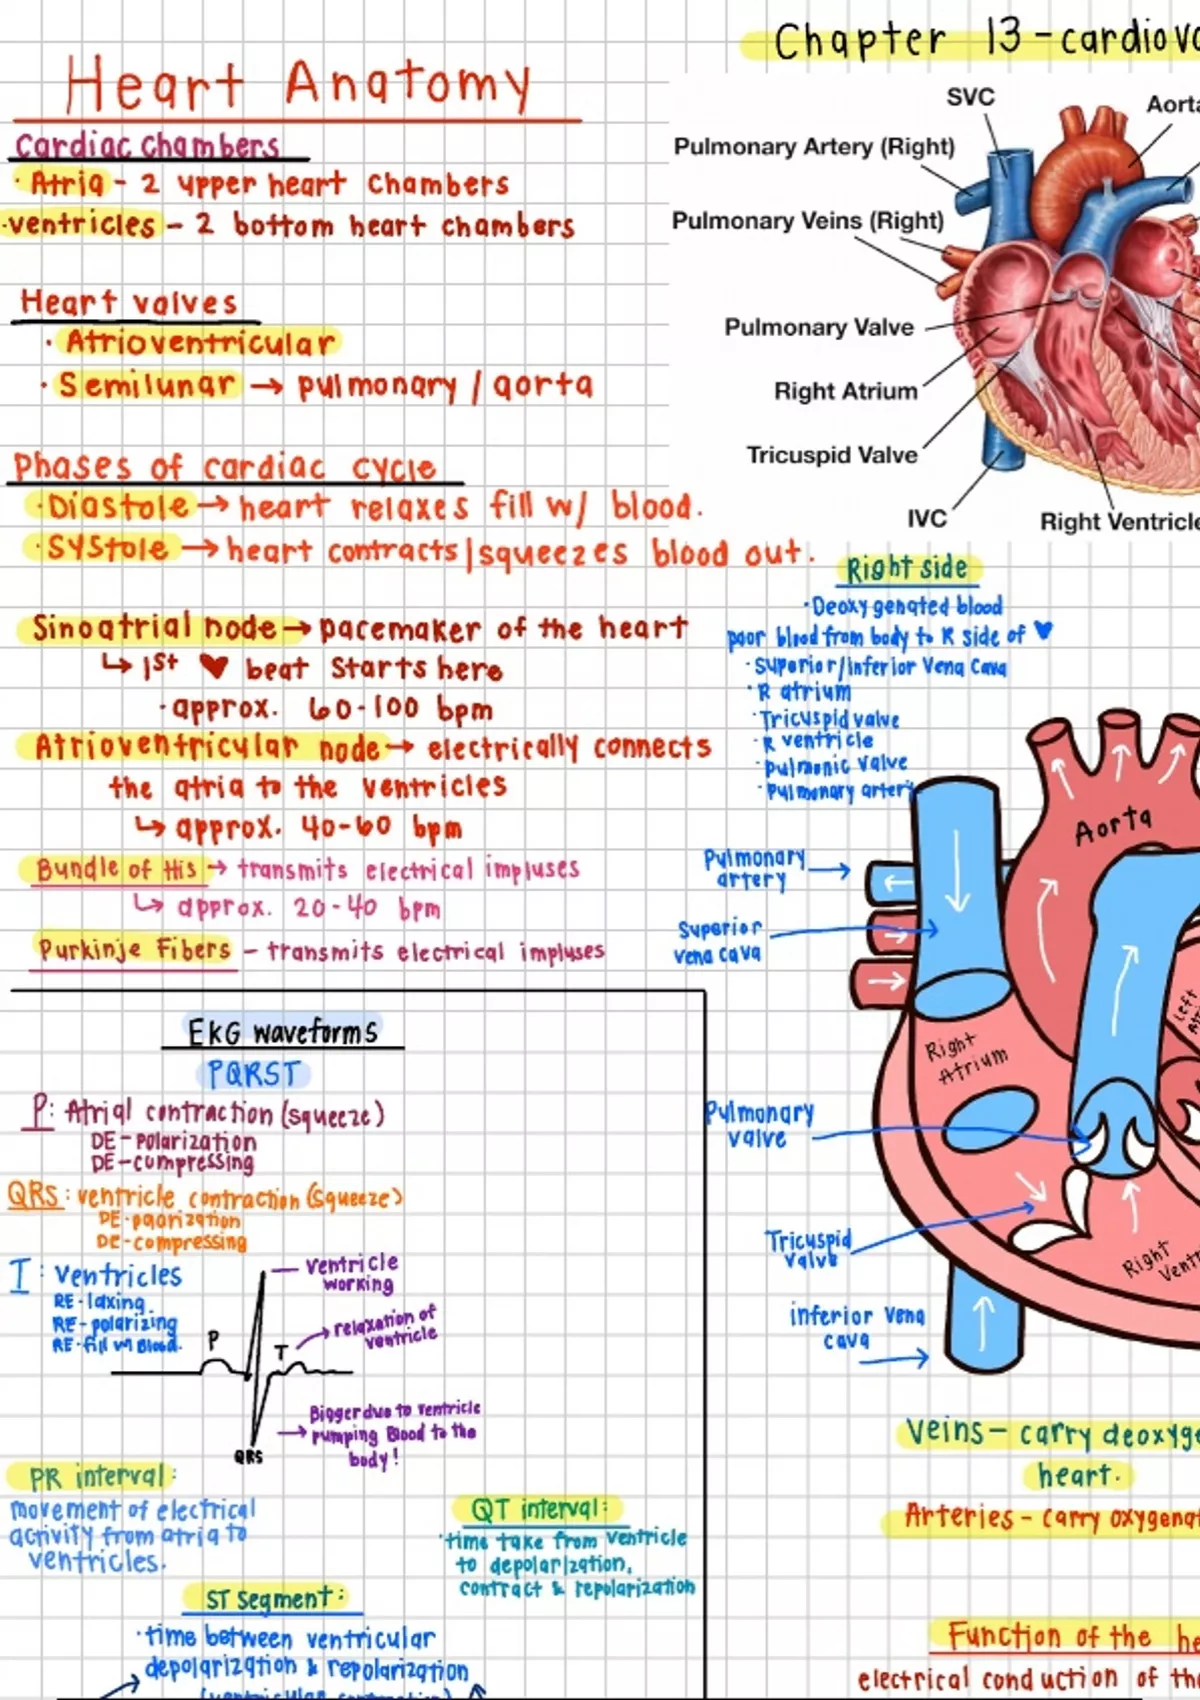 Chapter 13-cardiova
Heart Anatomy
Cardiac Chambers
· Atria - 2 upper heart chambers
·ventricles - 2 bottom heart chambers
Heart valves
· Atrioventricular
· Semilunar → pulmonary / aorta
Phases of cardiac cycle
·Diastole → heart relaxes fill w/ blood.
·Systole → heart contracts/squeezes blood out.
Sinoatrial node → pacemaker of the heart
↳ 1st ♥ beat starts here
·approx. 60-100 bpm
Atrioventricular node → electrically connects
the atria to the ventricles
↳ approx. 40-60 bpm
Bundle of His → transmits electrical impluses
↳ approx. 20-40 bpm
Purkinje Fibers - transmits electrical impluses
SVC
Aorta
Pulmonary Artery (Right)
Pulmonary Veins (Right)
Pulmonary Valve
Right Atrium
Tricuspid Valve
IVC
Right Ventricle
Right side
·Deoxygenated blood
poor blood from body to R side of ♥
·Superior/inferior Vena Cava
·R atrium
·Tricuspid valve
·R ventricle
·pulmonic valve
·pulmonary artery
Aorta
Pulmonary
artery →
Superior
vena cava
Left
Right
Atrium
Pulmonary
valve
Tricuspid
Valve
Right
Ventr
inferior vena
cava
EKG waveforms
PQRST
P: Atrial contraction (squeeze)
DE-polarization
DE-compressing
QRS: ventricle contraction (squeeze)
DE-poarization
DE-compressing
T: Ventricles
RE-laxing
RE-polarizing
RE-fill w/ Blood.
ventricle
working
P
T
relaxation of
ventricle
QRS
Bigger due to ventricle
pumping Blood to the
body!
PR interval:
movement of electrical
activity from atria to
ventricles.
QT interval:
·time take from ventricle
to depolarization,
contract & repolarization
ST Segment:
·time between ventricular
depolarization & repolarization
(ventricular contraction)
Veins- carry deoxyge
heart.
Arteries - carry oxygenat
Function of the he
electrical conduction of th